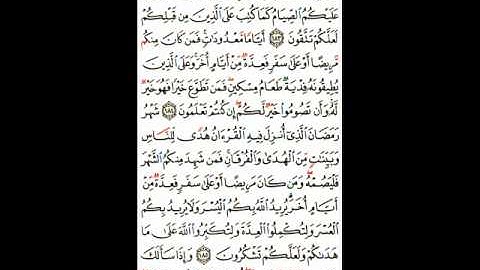 عَلَيْكُمُ الصِّيَامُ كَمَا كُتِبَ عَلَى الَّذِينَ مِن قَبْلِكُمْ
لَعَلَّكُمْ تَتَّقُونَ ١٨٣ أَيَّامًا مَّعْدُودَاتٍ ۚ فَمَن كَانَ مِنكُم
مَّرِيضًا أَوْ عَلَىٰ سَفَرٍ فَعِدَّةٌ مِّنْ أَيَّامٍ أُخَرَ ۚ وَعَلَى الَّذِينَ
يُطِيقُونَهُ فِدْيَةٌ طَعَامُ مِسْكِينٍ ۖ فَمَن تَطَوَّعَ خَيْرًا فَهُوَ خَيْرٌ
لَّهُ ۚ وَأَن تَصُومُوا خَيْرٌ لَّكُمْ ۖ إِن كُنتُمْ تَعْلَمُونَ ١٨٤ شَهْرُ
رَمَضَانَ الَّذِي أُنزِلَ فِيهِ الْقُرْءَانُ هُدًى لِّلنَّاسِ
وَبَيِّنَٰتٍ مِّنَ الْهُدَىٰ وَالْفُرْقَانِ ۚ فَمَن شَهِدَ مِنكُمُ الشَّهْرَ
فَلْيَصُمْهُ ۖ وَمَن كَانَ مَرِيضًا أَوْ عَلَىٰ سَفَرٍ فَعِدَّةٌ مِّنْ
أَيَّامٍ أُخَرَ ۗ يُرِيدُ اللَّهُ بِكُمُ الْيُسْرَ وَلَا يُرِيدُ بِكُمُ
الْعُسْرَ وَلِتُكْمِلُوا الْعِدَّةَ وَلِتُكَبِّرُوا اللَّهَ عَلَىٰ مَا
هَدَىٰكُمْ وَلَعَلَّكُمْ تَشْكُرُونَ ١٨٥ وَإِذَا سَأَلَكَ